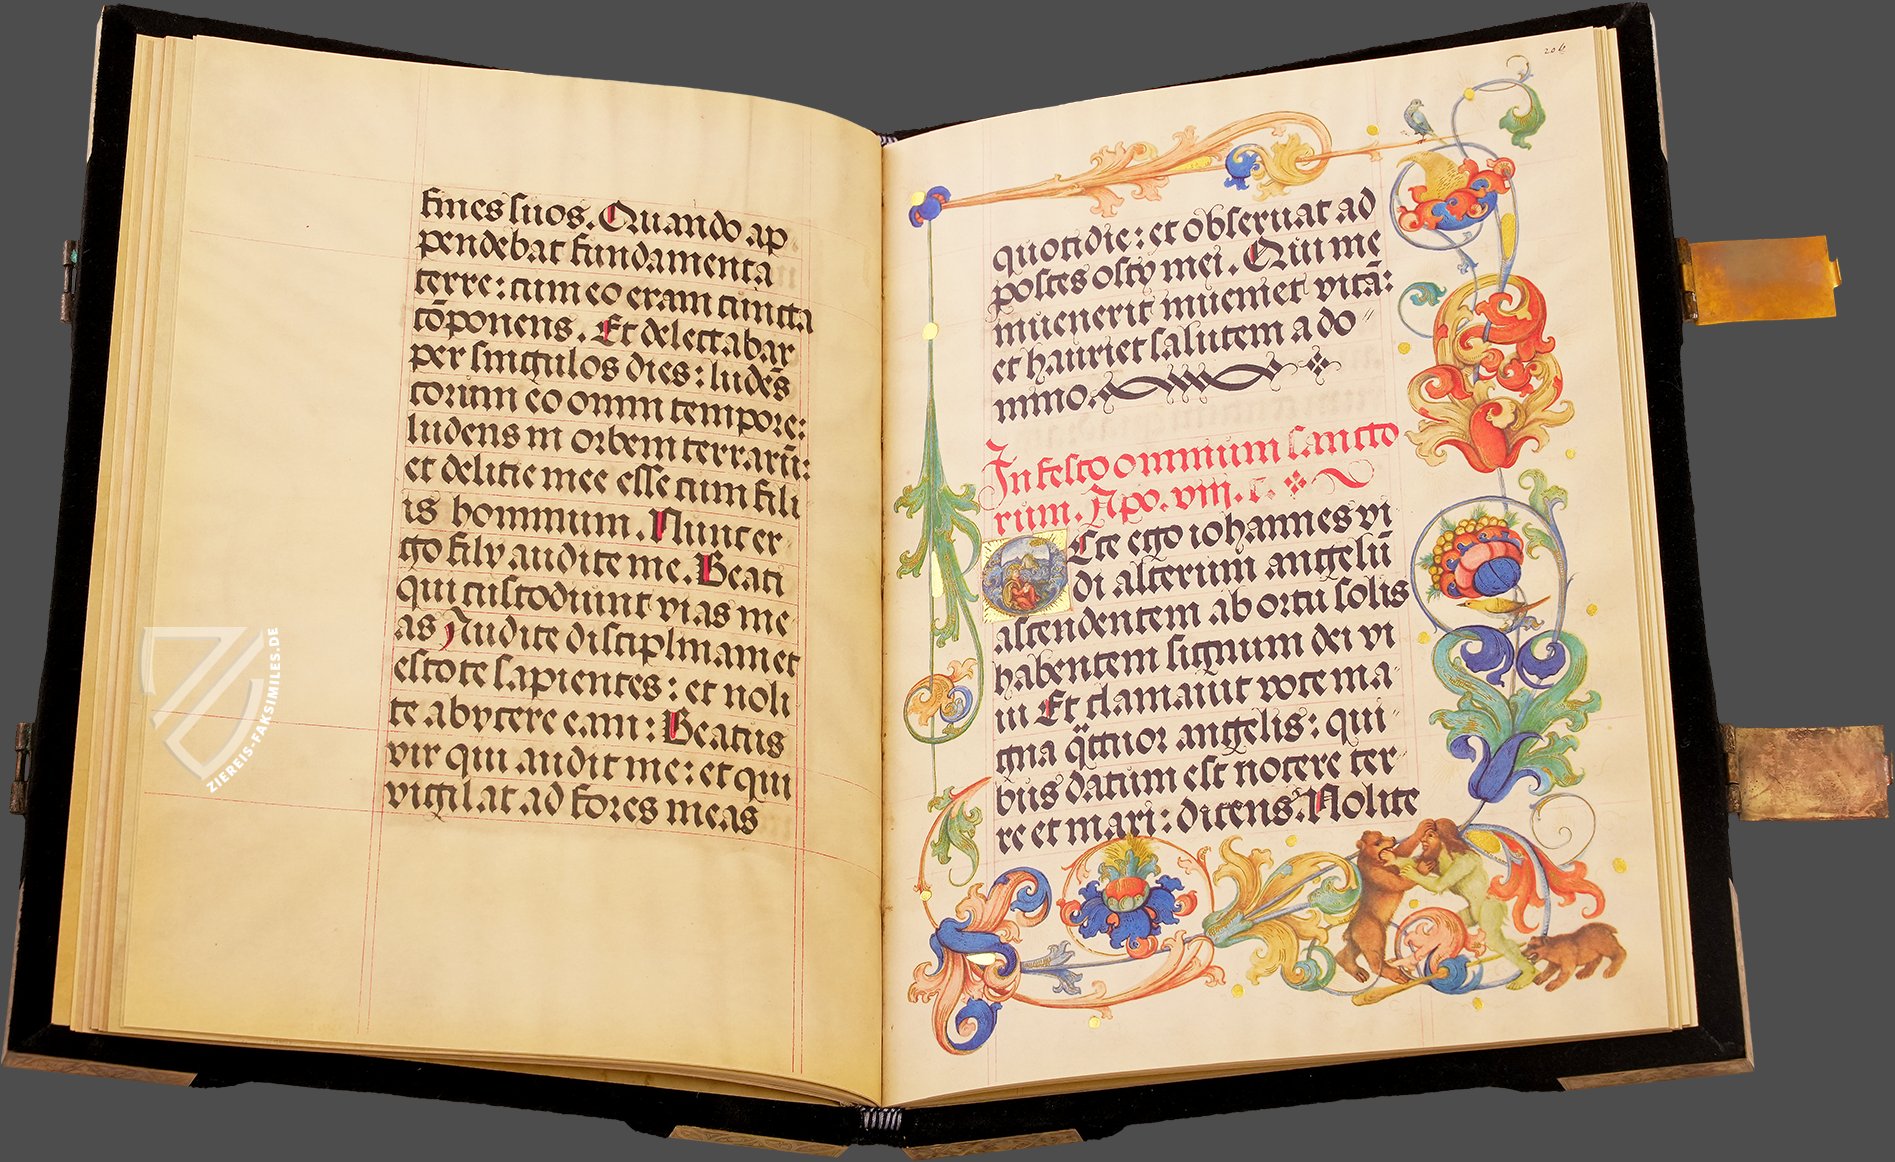 fines suos. Quando ap
pendebat fundamenta
terre: cum eo eram cuncta
cōponens. Et delectabar
per singulos dies: ludēs
coram eo omni tempore:
ludens in orbem terrarū:
et delitie mee esse cum fili
is hominum. Nunc er
go filii audite me. Beati
qui custodiunt vias me
as Audite disciplinam et
estote sapientes: et noli
te abycere eam: Beatus
vir qui audit me: et qui
vigilat ad fores meas
ZIEREIS-FAKSIMILES.DE
206
quotidie: et obseruat ad
postes osty mei. Qui me
inuenerit inueniet vitā:
et hauriet salutem a do
mino.
In festo omnium sancto
rum. Apo. vij. c.
Ecce ego iohannes vi
di alterum angelū
ascendentem ab ortu solis
habentem signum dei vi
ui Et clamauit voce ma
gna q̄tuor angelis: qui
bus datum est nocere ter
re et mari: dicens. Nolite